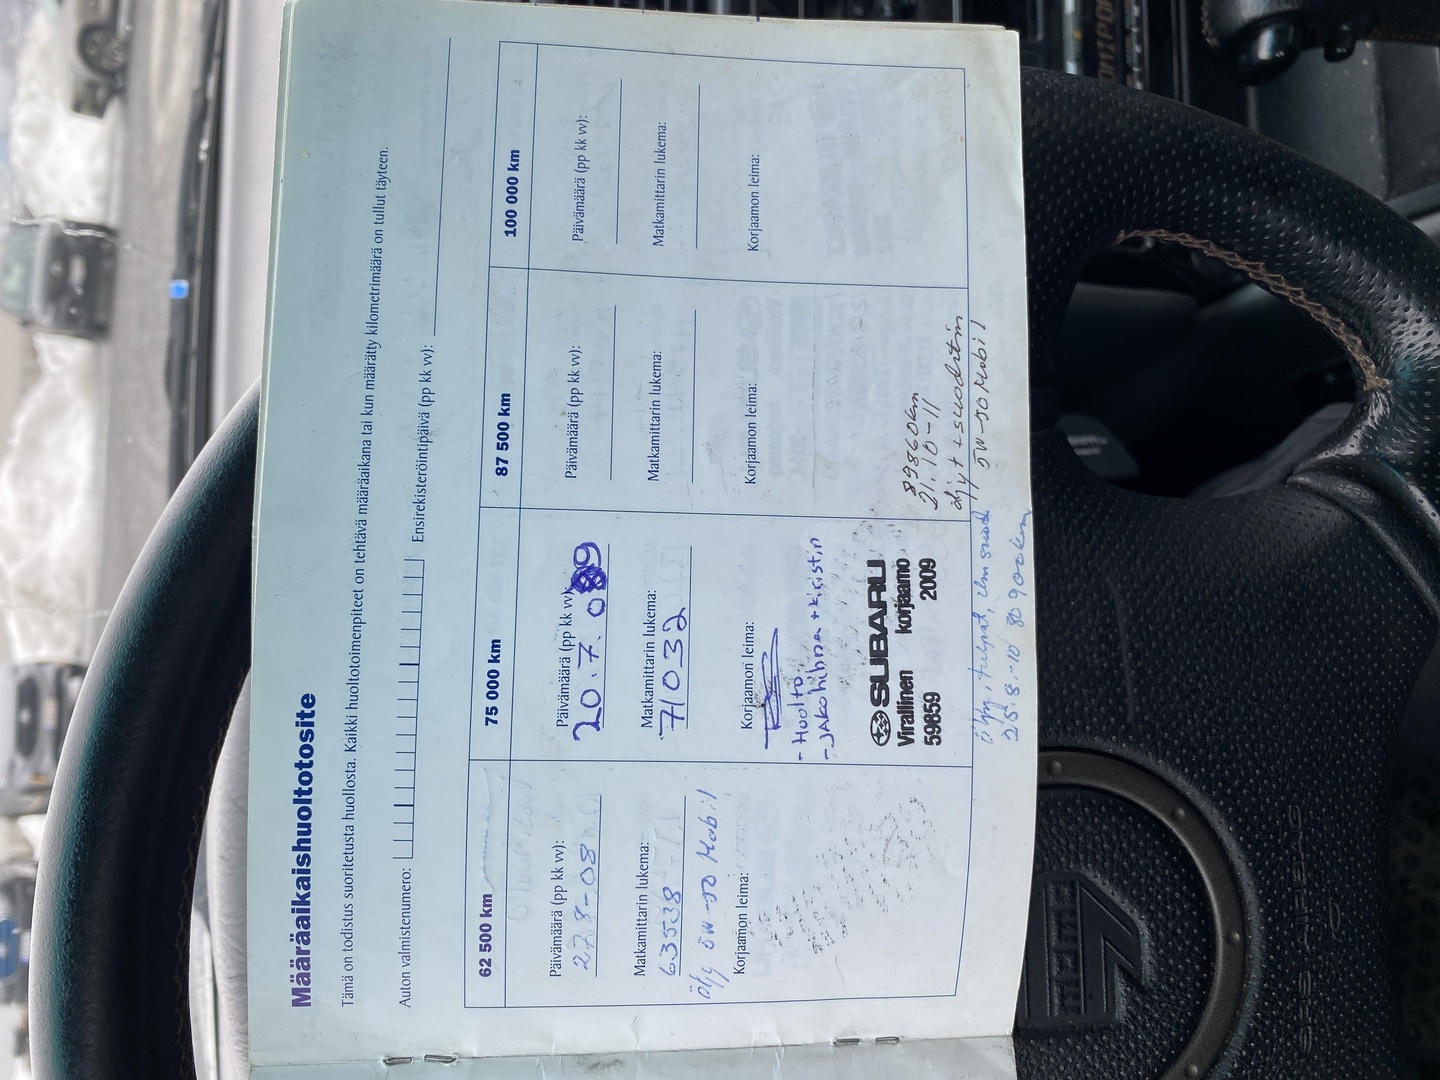 Määräaikaishuoltotosite
Tämä on todistus suoritetusta huollosta. Kaikki huoltotoimenpiteet on tehtävä määräaikana tai kun määrätty kilometrimäärä on tullut täyteen.
Auton valmistenumero:
Ensirekisteröintipäivä (pp kk vv):
62 500 km
Päivämäärä (pp kk vv):
27.8-08
Matkamittarin lukema:
63538
Öljy 5W-50 Mobil
Korjaamon leima:
75 000 km
Päivämäärä (pp kk vv):
20.7.09
Matkamittarin lukema:
71032
Korjaamon leima:
- Huolto
- Jakohihna + kiristin
SUBARU
Virallinen korjaamo
59859 2009
Öljy, tulpat, ilm suod
25.8.-10 80900km
87 500 km
Päivämäärä (pp kk vv):
Matkamittarin lukema:
Korjaamon leima:
89860km
21.10-11
öljyt + suodatin
5W-50 Mobil
100 000 km
Päivämäärä (pp kk vv):
Matkamittarin lukema:
Korjaamon leima:
momo
SRS AIRBAG